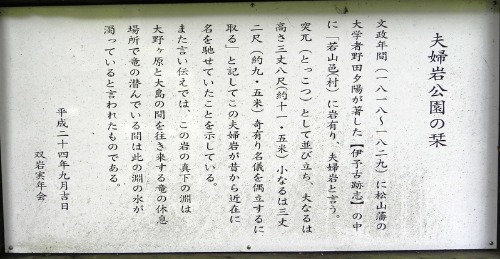 夫婦岩公園の栞
文政年間(一八一八〜一八二九)に松山藩の
大学者野田夕陽が著した【伊予古跡志】の中
に「若山邑(村)に岩有り、夫婦岩と言う。
突兀(とっこつ)として並び立ち、大なるは
高さ三丈八尺(約十一・五米)小なるは三丈
二尺(約九・五米)奇有り名儀を偶立するに
取る」と記してこの夫婦岩が昔から近在に
名を馳せていたことを示している。
また言い伝えでは、この岩の真下の淵は
大野ヶ原と大島の間を往き来する竜の休息
場所で竜の潜んでいる間は此の淵の水が
濁っていると言われたものである。
平成二十四年九月吉日
双岩実年会